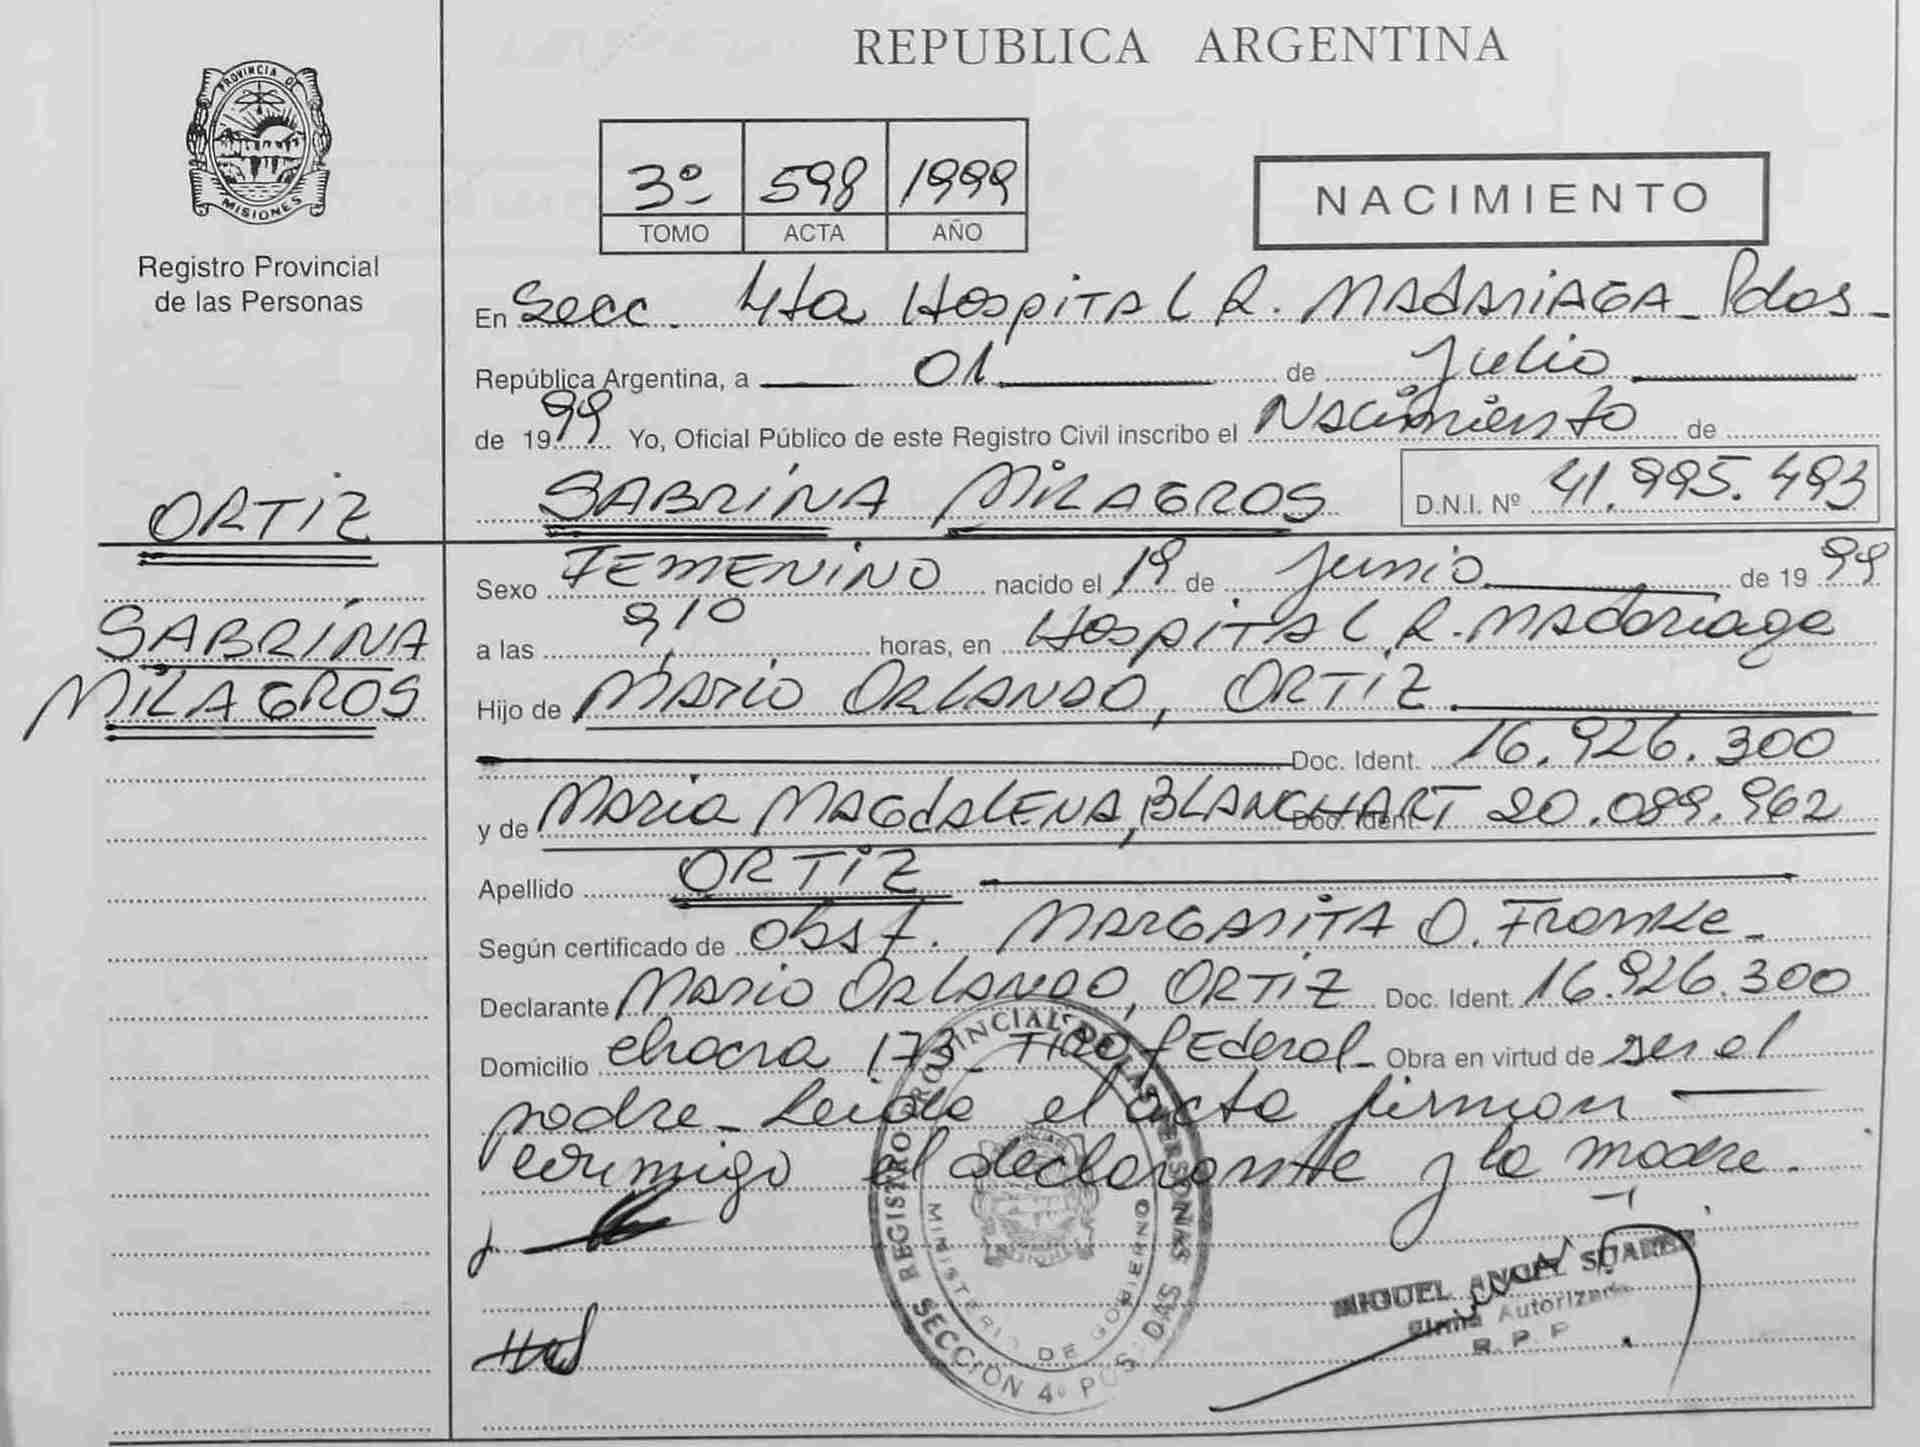 REPUBLICA ARGENTINA
PROVINCIA DE
MISIONES
Registro Provincial
de las Personas
3º 598 1999
TOMO ACTA AÑO
NACIMIENTO
En Secc. 4ta Hospital R. MADARIAGA - Pdas -
República Argentina, a 01 de Julio
de 1999 Yo, Oficial Público de este Registro Civil inscribo el Nacimiento de
SABRINA MILAGROS D.N.I. Nº 41.995.493
ORTIZ
SABRINA
MILAGROS
Sexo FEMENINO nacido el 19 de Junio de 1999
a las 9,10 horas, en Hospital R. Madariaga
Hijo de MARIO ORLANDO, ORTIZ
Doc. Ident. 16.926.300
y de MARIA MAGDALENA, BLANCHART Doc. Ident. 20.089.962
Apellido ORTIZ
Según certificado de obst. MARGARITA O. Franke -
Declarante MARIO ORLANDO, ORTIZ Doc. Ident. 16.926.300
Domicilio chacra 173 - TIRO fEderal - Obra en virtud de ser el
padre - Leida el acta firman
conmigo el declarante y la madre.
REGISTRO PROVINCIAL DE LAS PERSONAS
MINISTERIO DE GOBIERNO
SECCION 4º POSADAS
MIGUEL ANGEL SUAREZ
Firma Autorizada
R. P. P.